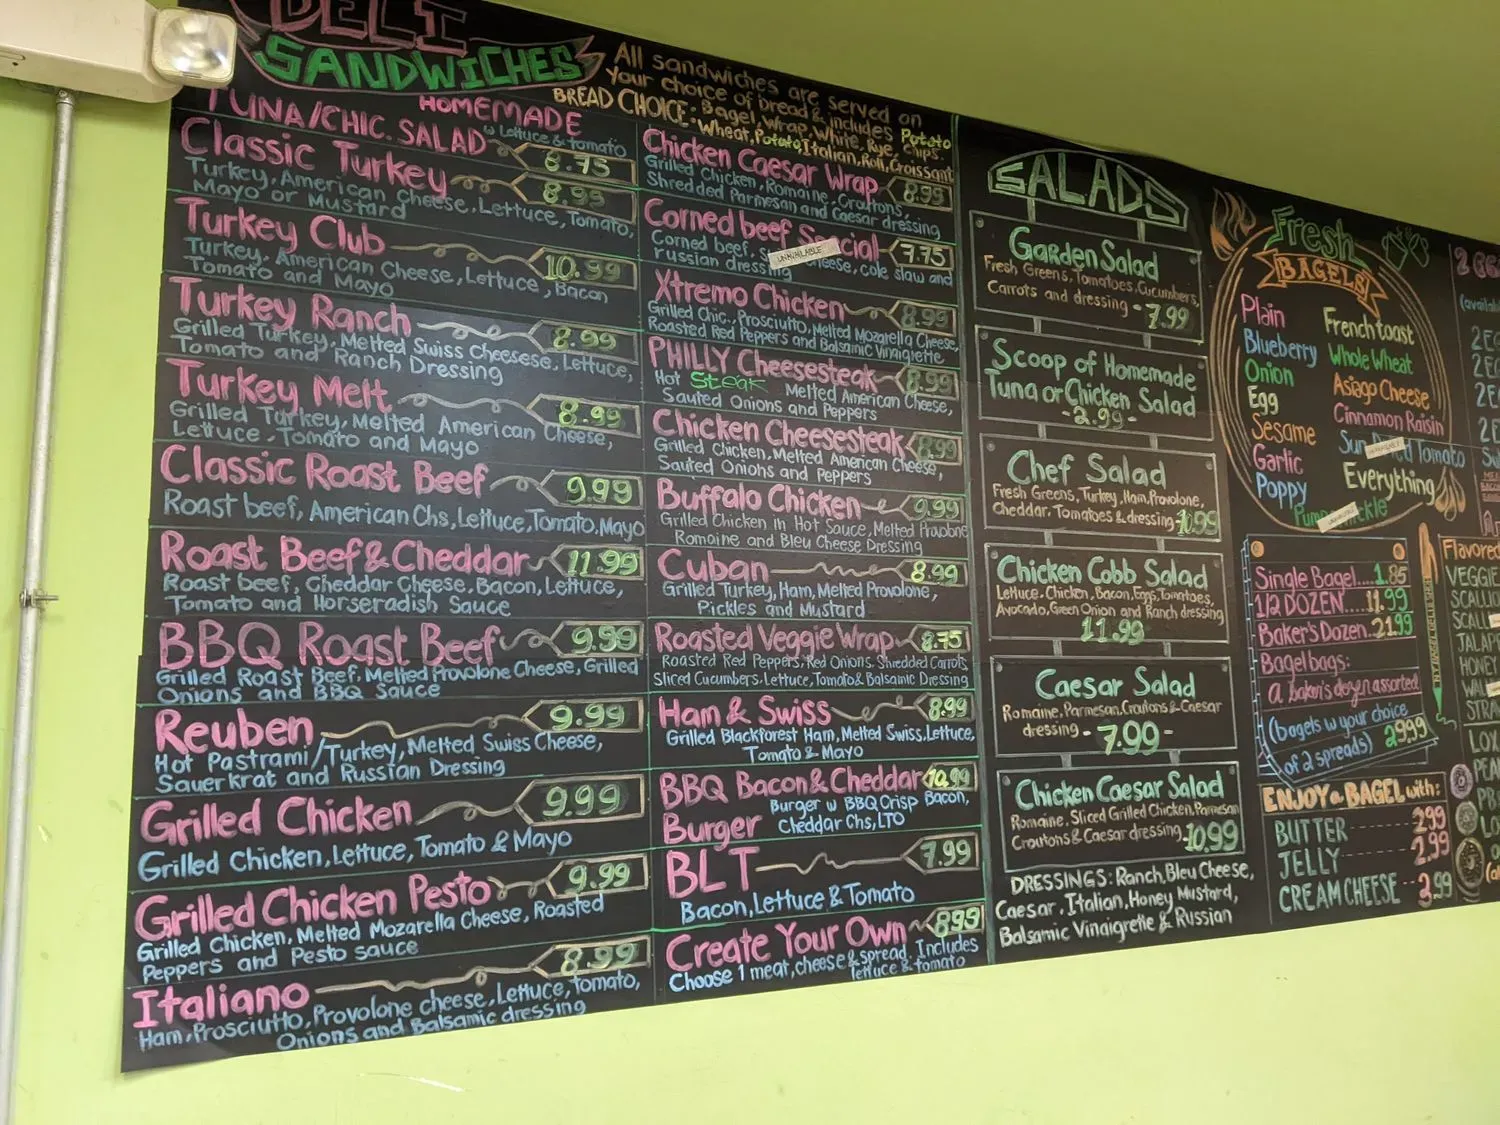 DELI
SANDWICHES
All sandwiches are served on
Your choice of bread & includes Potato
BREAD CHOICE: Bagel, Wrap, White, Rye, Chips.
Wheat, Potato, Italian, Roll, Croissant
HOMEMADE
TUNA/CHIC. SALAD w Lettuce & tomato 8.75
Classic Turkey 8.99
Turkey, American Cheese, Lettuce, Tomato,
Mayo or Mustard
Turkey Club 10.99
Turkey, American Cheese, Lettuce, Bacon
Tomato and Mayo
Turkey Ranch 8.99
Grilled Turkey, Melted Swiss Cheesese, Lettuce,
Tomato and Ranch Dressing
Turkey Melt 8.99
Grilled Turkey, Melted American Cheese,
Lettuce, Tomato and Mayo
Classic Roast Beef 9.99
Roast beef, American Chs, Lettuce, Tomato, Mayo
Roast Beef & Cheddar 11.99
Roast beef, Cheddar Cheese, Bacon, Lettuce,
Tomato and Horseradish Sauce
BBQ Roast Beef 9.99
Grilled Roast Beef, Melted Provolone Cheese, Grilled
Onions and BBQ Sauce
Reuben 9.99
Hot Pastrami/Turkey, Melted Swiss Cheese,
Sauerkrat and Russian Dressing
Grilled Chicken 9.99
Grilled Chicken, Lettuce, Tomato & Mayo
Grilled Chicken Pesto 9.99
Grilled Chicken, Melted Mozarella Cheese, Roasted
Peppers and Pesto sauce
Italiano 8.99
Ham, Prosciutto, Provolone cheese, Lettuce, Tomato,
Onions and Balsamic dressing
Chicken Caesar Wrap 8.99
Grilled Chicken, Romaine, Croutons,
Shredded Parmesan and Caesar dressing
Corned beef Special 7.75
Corned beef, cheese, cole slaw and
russian dressing
UNAVAILABLE
Xtremo Chicken 8.99
Grilled Chic, Prosciutto, Melted Mozarella Cheese,
Roasted Red Peppers and Balsamic Vinaigrette
PHILLY Cheesesteak 8.99
Hot Steak Melted American Cheese,
Sauted Onions and Peppers
Chicken Cheesesteak 8.99
Grilled Chicken, Melted American Cheese,
Sauted Onions and Peppers
Buffalo Chicken 9.99
Grilled Chicken in Hot Sauce, Melted Provolone
Romaine and Bleu Cheese Dressing
Cuban 8.99
Grilled Turkey, Ham, Melted Provolone,
Pickles and Mustard
Roasted Veggie Wrap 8.75
Roasted Red Peppers, Red Onions, Shredded Carrots,
Sliced Cucumbers, Lettuce, Tomato & Balsamic Dressing
Ham & Swiss 8.99
Grilled Blackforest Ham, Melted Swiss, Lettuce,
Tomato & Mayo
BBQ Bacon & Cheddar 10.99
Burger
Burger w BBQ Crisp Bacon,
Cheddar Chs, LTO
BLT 7.99
Bacon, Lettuce & Tomato
Create Your Own 8.99
Choose 1 meat, cheese & spread. Includes
lettuce & tomato
SALADS
Garden Salad
Fresh Greens, Tomatoes, Cucumbers,
Carrots and dressing - 7.99
Scoop of Homemade
Tuna or Chicken Salad
-2.99-
Chef Salad
Fresh Greens, Turkey, Ham, Provolone,
Cheddar, Tomatoes & dressing 10.99
Chicken Cobb Salad
Lettuce, Chicken, Bacon, Eggs, Tomatoes,
Avocado, Green Onion and Ranch dressing
11.99
Caesar Salad
Romaine, Parmesan, Croutons & Caesar
dressing - 7.99 -
Chicken Caesar Salad
Romaine, Sliced Grilled Chicken, Parmesan
Croutons & Caesar dressing 10.99
DRESSINGS: Ranch, Bleu Cheese,
Caesar, Italian, Honey Mustard,
Balsamic Vinaigrette & Russian
Fresh
BAGELS
Plain
Blueberry
Onion
Egg
Sesame
Garlic
Poppy
French toast
Whole Wheat
Asiago Cheese
Cinnamon Raisin
Sun Dried Tomato
Everything
UNAVAILABLE
Single Bagel....1.85
1/2 DOZEN.....11.99
Baker's Dozen..21.99
Bagel bags:
a baker's dozen assorted
(bagels w your choice
of 2 spreads) 29.99
ENJOY a BAGEL with:
BUTTER 2.99
JELLY 2.99
CREAM CHEESE 3.99
Flavored
VEGGIE
HONEY